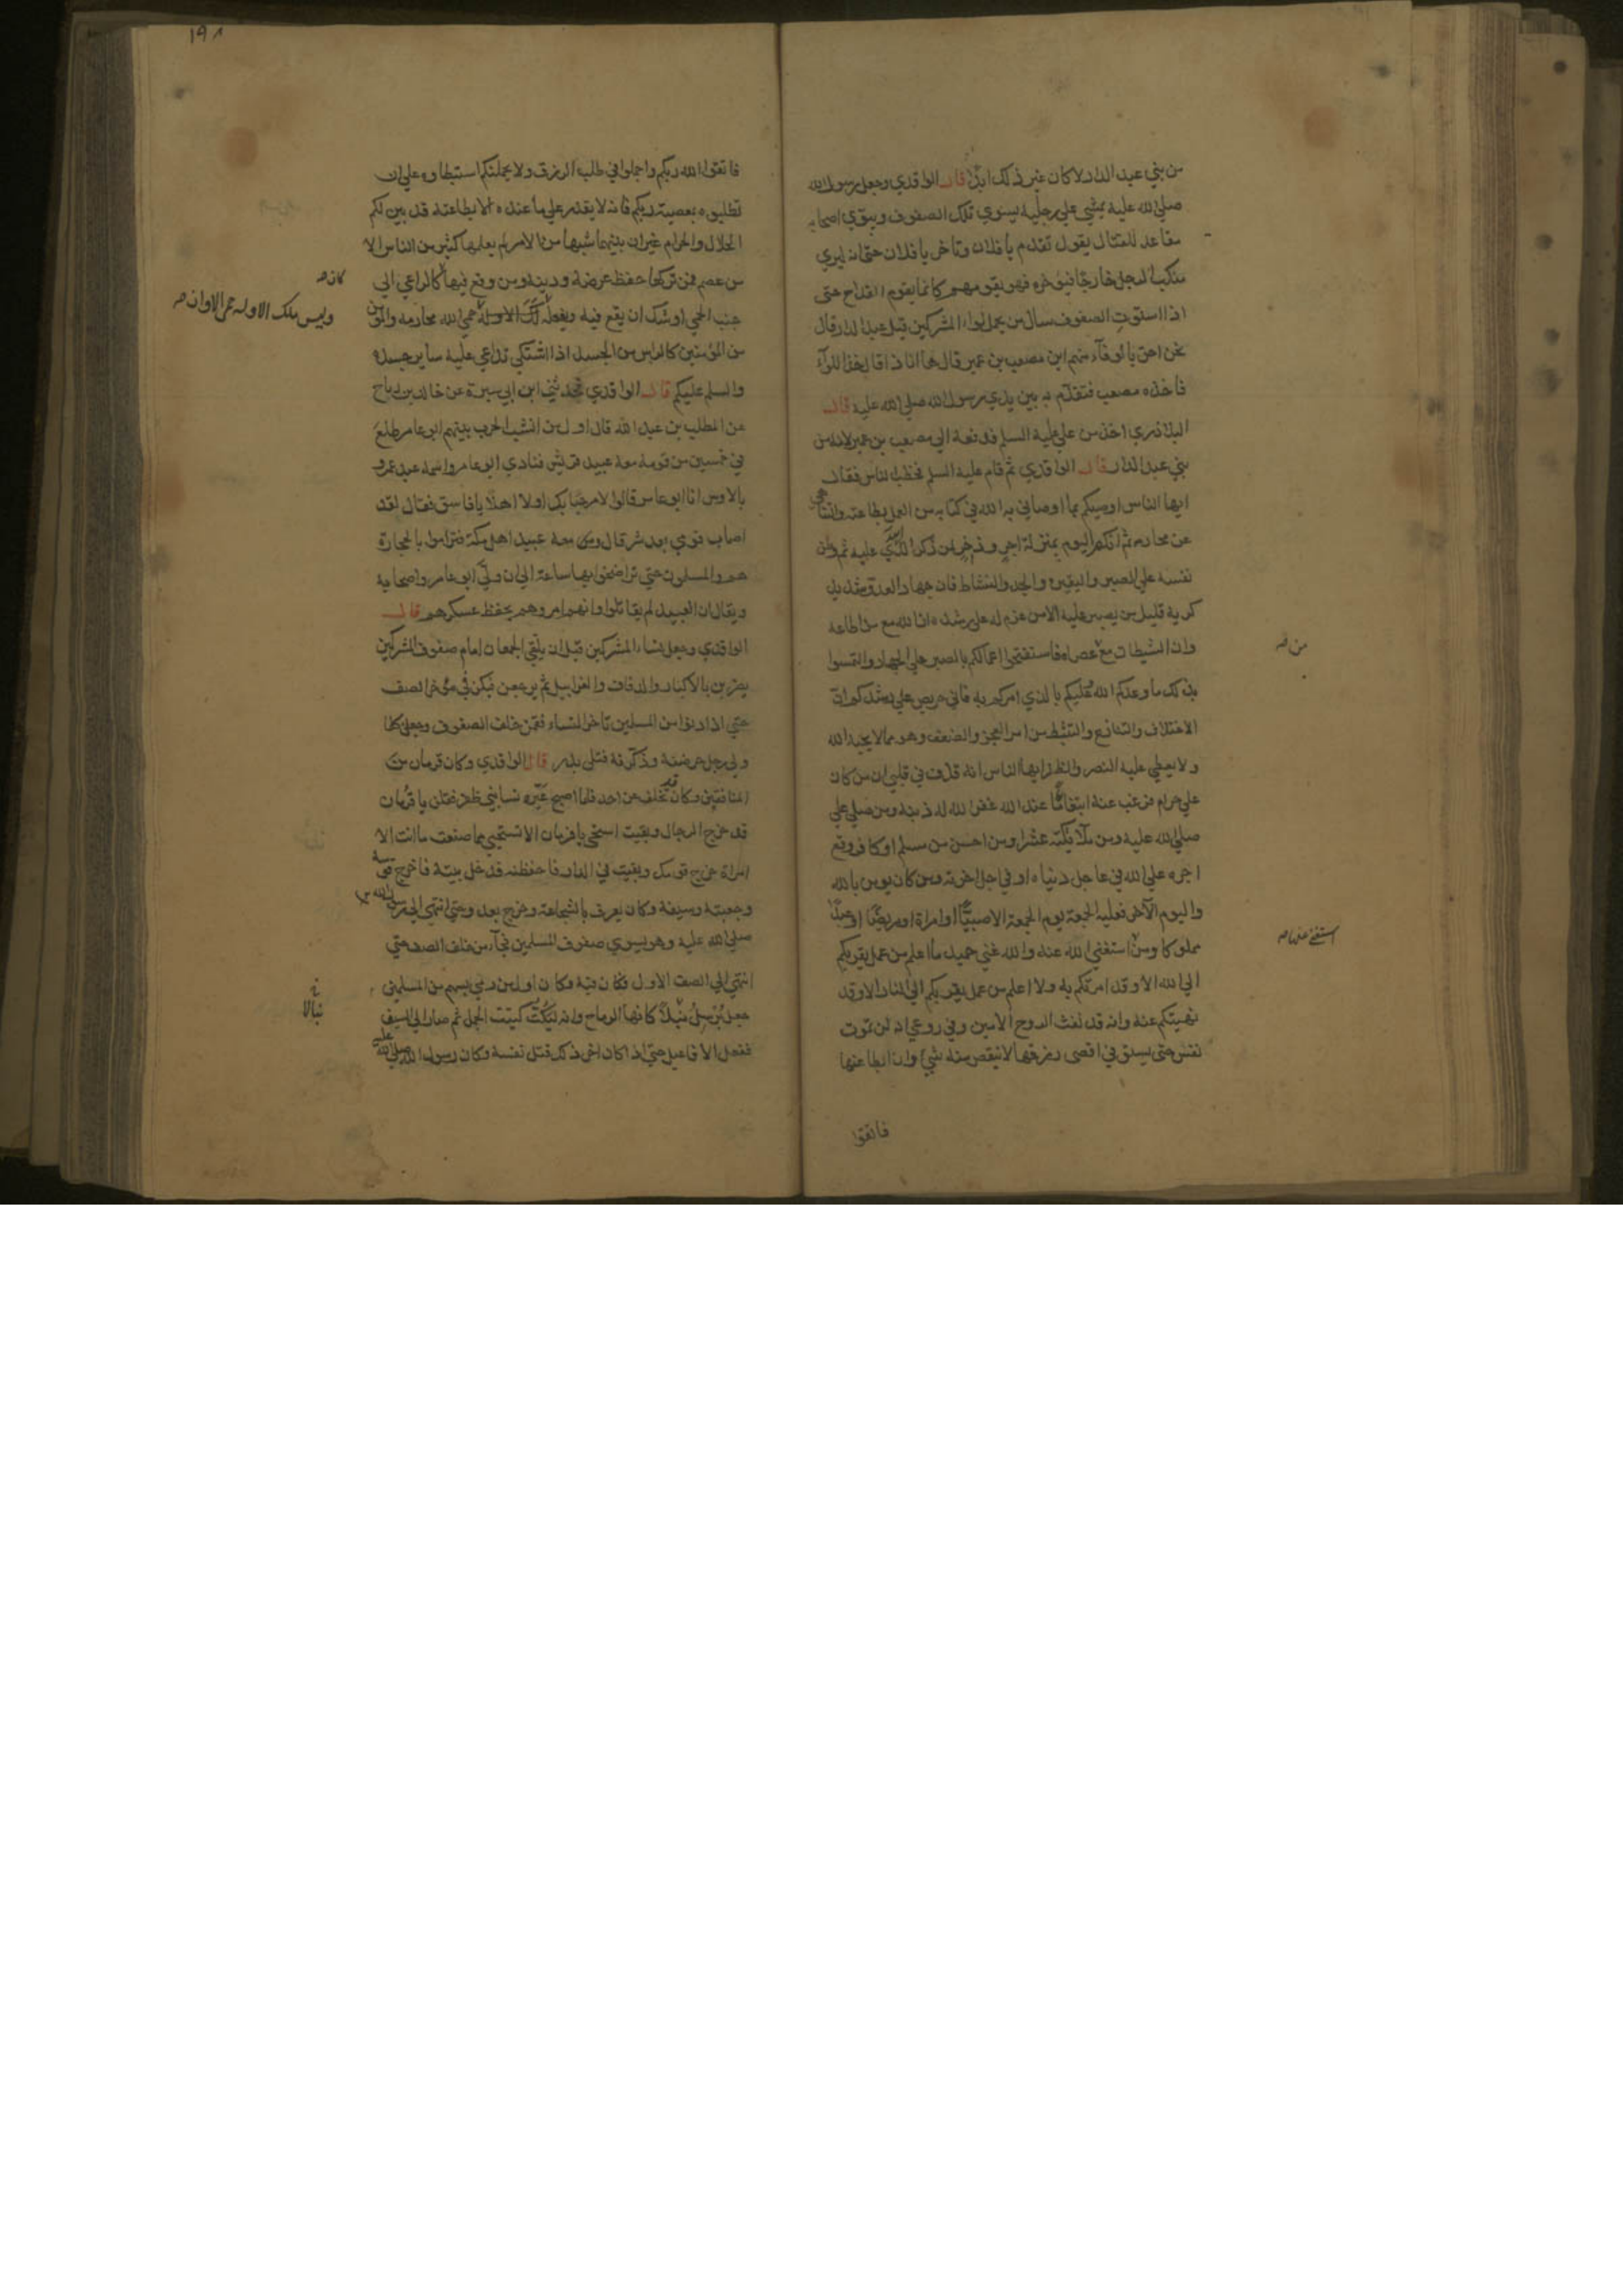 من بني عبد الدار لا كان غير ذلك ابدًا قال الواقدي وجعل رسول الله
صلى الله عليه يمشي على رجليه يسوي تلك الصفوف ويبوّي اصحابه
مقاعد للقتال يقول تقدم يا فلان وتاخر يا فلان حتى انه ليري
منكب الرجل خارجًا فيؤخره فهو يقومهم كانما يقوم القداح حتى
اذا استوت الصفوف سال من يحمل لواء المشركين قيل عبد الدار قال
نحن احق بالوفاء منهم اين مصعب بن عمير قال ها انا ذا قال خذ اللواء
فاخذه مصعب فتقدّم به بين يدي رسول الله صلى الله عليه قال
البلاذري اخذه من علي عليه السلم فدفعه الى مصعب بن عمير لانه من
بني عبد الدار قال الواقدي ثم قام عليه السلم فخطب الناس فقال
ايها الناس اوصيكم بما اوصاني به الله في كتابه من العمل بطاعته والتناهي
عن محارمه ثم انكم اليوم بمنزلة اجر وذخر لمن ذكر الذي عليه ثم وطن
نفسه على الصبر واليقين والجد والنشاط فان جهاد العدو شديد
كربه قليل من يصبر عليه الا من عزم له على رشده ان الله مع من اطاعه
وان الشيطان مع عصاه فاستفتحوا اعمالكم بالصبر على الجهاد والتمسوا
من صه
بذلك ما وعدكم الله عليكم بالذي امركم به فاني حريص على رشدكم ان
الاختلاف والتنازع والتثبط من امر العجز والضعف وهو مما لا يحبه الله
ولا يعطي عليه النصر والظفر ايها الناس انه قذف في قلبي ان من كان
على حرام فرغب عنه ابتغاء ما عند الله غفر الله له ذنبه ومن صلى علي
صلى الله عليه وملائكته عشرا ومن احسن من مسلم او كافر وقع
اجره على الله في عاجل دنياه او في اجل اخرته ومن كان يومن بالله
واليوم الآخر فعليه الجمعة يوم الجمعة الا صبيًّا او امراة او مريضًا او عبدًا
مملوكا ومن استغنى الله عنه والله غني حميد ما اعلم من عمل يقربكم
استغنى عنها صه
الى الله الا وقد امرتكم به ولا اعلم من عمل يقربكم الى النار الا وقد
نهيتكم عنه وانه قد نفث الروح الامين في روعي انه لن تموت
نفس حتى يستوفي اقصى رزقها لا ينقص منه شي وان ابطا عنها
فاتقوا
١٩٨
فاتقوا الله ربكم واجملوا في طلب الرزق ولا يحملنكم استبطاوه على ان
تطلبوه بمعصية ربكم فانه لا يقدر على ما عنده الا بطاعته قد بين لكم
الحلال والحرام غير ان بينهما شبها من الامر لم يعلمها كثير من الناس الا
من عصم فمن تركها حفظ عرضه ودينه ومن وقع فيها كالراعي الى
كان صه
جنب الحمى اوشك ان يقع فيه حمى الله محارمه والمؤمن
وليس ملك الا وله حمى الا وان صه
من المؤمنين كالراس من الجسد اذا اشتكى تداعى عليه ساير جسده
والسلم عليكم قال الواقدي فحدثني ابن ابي سبرة عن خالد بن رباح
عن المطلب بن عبد الله قال اول من انشب الحرب بينهم ابو عامر طلع
في خمسين من قومه معه عبيد قريش فنادى ابو عامر واسمه عبد عمرو
يالاوس انا ابو عامر قالوا لا مرحبًا بك ولا اهلًا يا فاسق فقال لقد
اصاب قومي بعدي شر قال ومعه عبيد اهل مكة فتراموا بالحجارة
هم والمسلمون حتى تراضخوا بها ساعة الى ان ولّى ابو عامر واصحابه
ويقال ان العبيد لم يقاتلوا وانهم امروهم بحفظ عسكرهم قال
الواقدي وجعل نساء المشركين قبل ان يلتقي الجمعان امام صفوف المشركين
يضربن بالاكبار والدفاف والغرابيل ثم يرجعن فيكن في مؤخر الصف
حتى اذا دنوا من المسلمين تاخر النساء فقمن خلف الصفوف وجعلن كلما
ولى رجل حرضنه وذكّرنه قتلى بدر قال الواقدي وكان قزمان من
المنافقين وكان قد تخلف عن احد فلما اصبح عيّره نساء بني ظفر فقلن يا قزمان
قد خرج الرجال وبقيت استحي يا قزمان الا تستحيي مما صنعت ما انت الا
امراة خرج قومك وبقيت في الدار فاحفظنه فدخل بيته فاخرج قوسه
وجعبته وسيفه وكان يعرف بالشجاعة وخرج يعدو حتى انتهى الى رسول الله
صلى الله عليه وهو يسوي صفوف المسلمين فجاء من خلف الصف حتى
انتهى الى الصف الاول فكان فيه وكان اول من رمى بسهم من المسلمين
جعل يرسل نبلًا كانها الرماح وانه ليكتّ كتيت الجمل ثم صار الى السيف
نبالا خ
ففعل الافاعيل حتى اذا كان اخر ذلك قتل نفسه وكان رسول الله صلى الله عليه